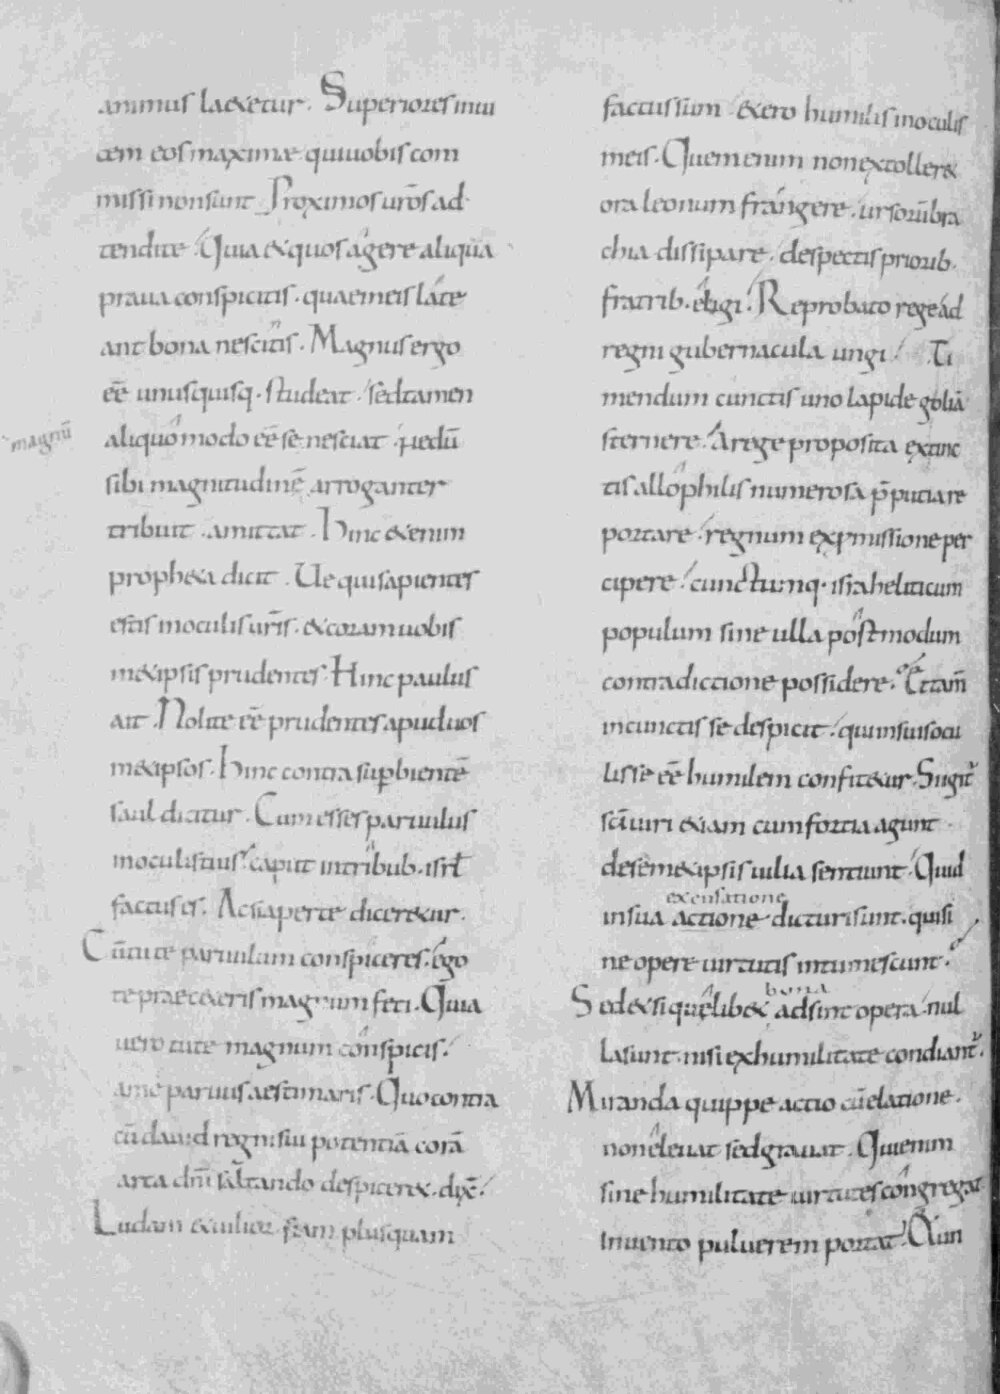 animus laetetur. Superiores inui
cem eos maxime qui uobis com
missi non sunt. Proximos uros ad
tendite. Quia et quos agere aliqua
praua conspicitis. quae in eis late
ant bona nescitis. Magnus ergo
eē unusquisq. studeat. sed tamen
magnū
aliquo modo eē se nesciat. ne dū
sibi magnitudinē arroganter
tribuit. amittat. Hinc etenim
propheta dicit. Ue qui sapientes
estis in oculis uris. et coram uobis
metipsis prudentes. Hinc paulus
ait. Nolite eē prudentes apud uos
metipsos. Hinc contra supbientē
saul dicitur. Cum esses paruulus
in oculis tuis. caput in tribub. isrl
factus es. Ac si aperte diceretur.
Cū tu te paruulum conspiceres. ego
te prae ceteris magnum feci. Quia
uero tu te magnum conspicis.
a me paruus aestimaris. Quo contra
cū dauid regni sui potentiā corā
arca dni saltando despiceret. dix̄.
Ludam et uilior fiam plus quam
factus sum. et ero humilis in oculis
meis. Quem enim non extolleret
ora leonum frangere. ursorū bra
chia dissipare. despectis priorib.
fratrib. eligi. Reprobato rege ad
regni gubernacula ungi. Ti
mendum cunctis uno lapide goliā
sternere. A rege proposita extinc
tis allophilis numerosa p̄putia re
portare. regnum ex pmissione per
cipere. cunctumq. israheliticum
populum sine ulla postmodum
contradictione possidere. Et tam̄
in cunctis se despicit. qui in suis ocu
lis se eē humilem confitetur. Si igit
sci uiri etiam cum fortia agunt.
de semetipsis uilia sentiunt. Quid
excusatione
in sua actione dicturi sunt. qui si
ne opere uirtutis intumescunt.
bona
Sed et si quelibet adsint opera. nul
la sunt. nisi ex humilitate condiant.
Miranda quippe actio cū elatione.
non eleuat sed grauat. Qui enim
sine humilitate uirtutes congregat
in uento puluerem portat. Et un